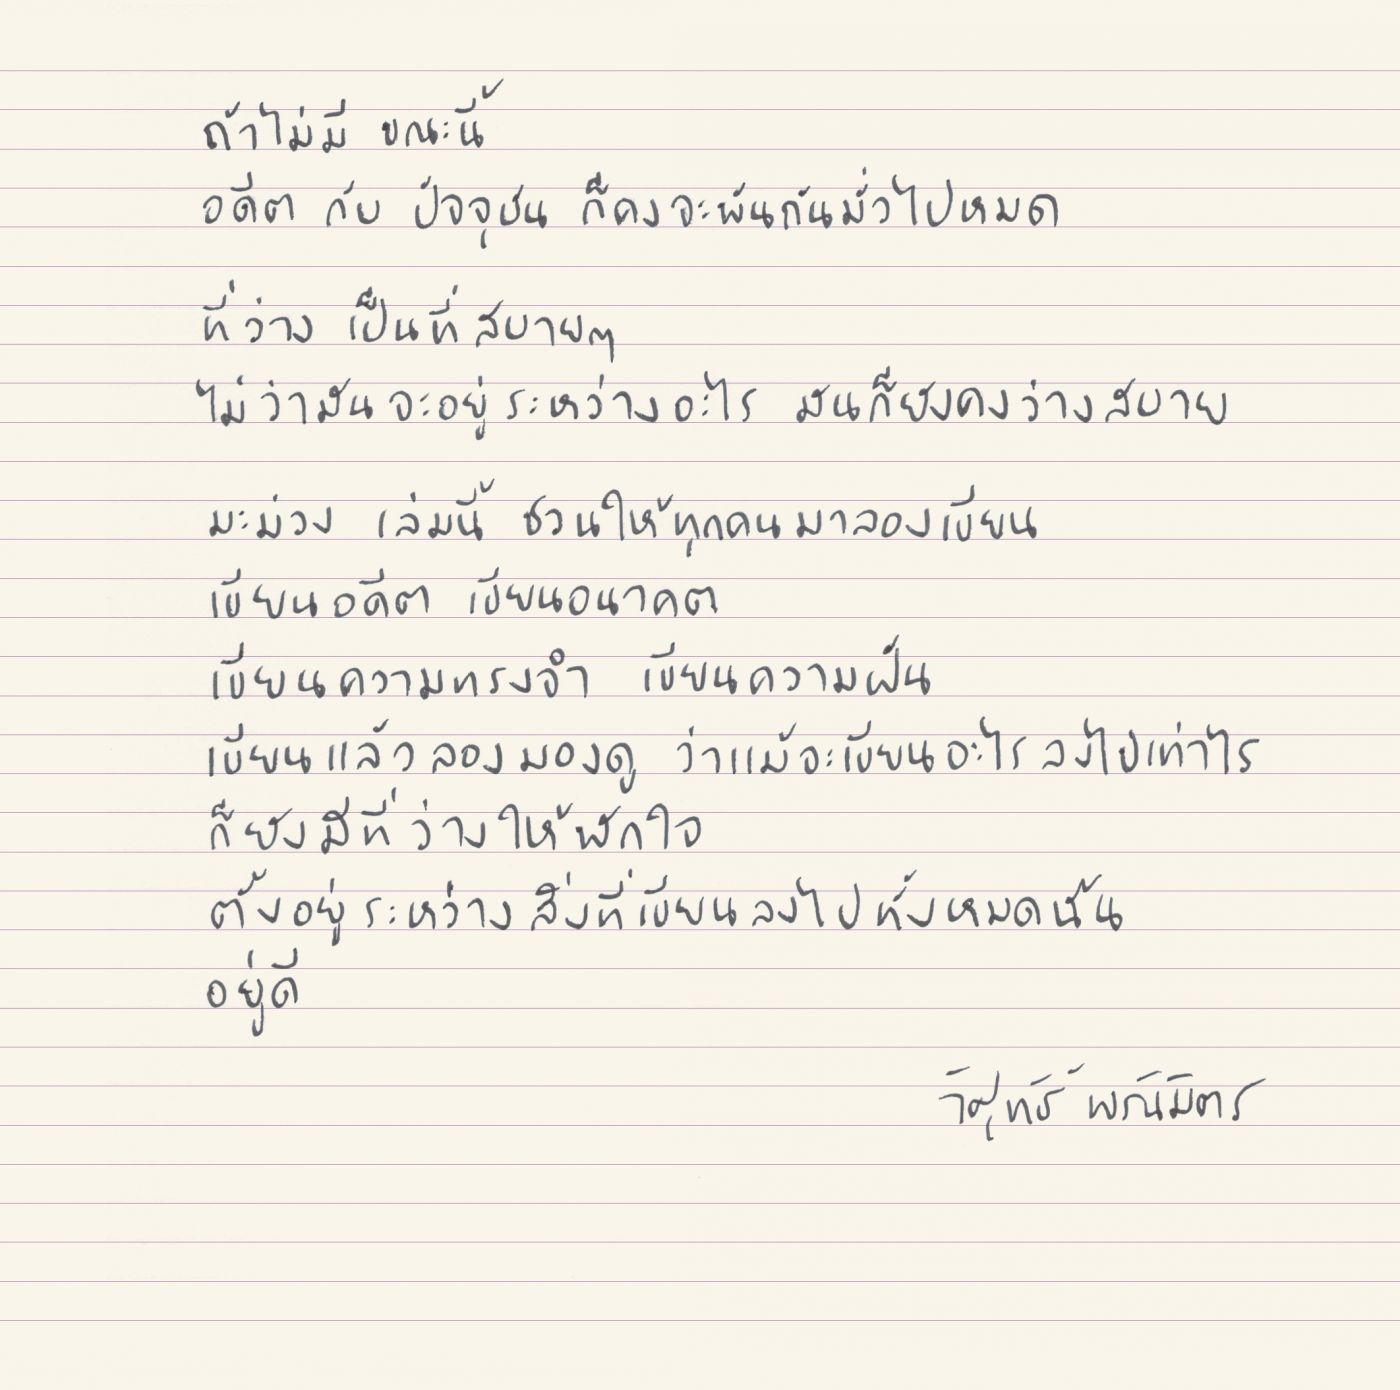 ถ้าไม่มี ขณะนี้
อดีต กับ ปัจจุบัน ก็คงจะพันกันมั่วไปหมด
ที่ว่าง เป็นที่สบายๆ
ไม่ว่ามันจะอยู่ระหว่างอะไร มันก็ยังคงว่างสบาย
มะม่วง เล่มนี้ ชวนให้ทุกคนมาลองเขียน
เขียนอดีต เขียนอนาคต
เขียนความทรงจำ เขียนความฝัน
เขียนแล้วลองมองดู ว่าแม้จะเขียนอะไรลงไปเท่าไร
ก็ยังมีที่ว่างให้พักใจ
ตั้งอยู่ระหว่างสิ่งที่เขียนลงไปทั้งหมดนั้น
อยู่ดี
วิศุทธิ์ พรนิมิตร